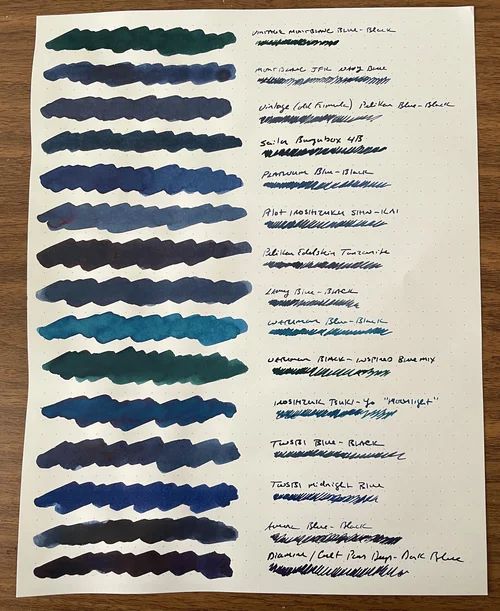 VINTAGE MONTBLANC BLUE-BLACK
MONTBLANC JFK NAVY BLUE
Vintage (old Formula) Pelikan Blue-Black
Sailor Bungubox 4B
PLATINUM Blue-Black
Pilot IROSHIZUKU SHIN-KAI
Pelikan Edelstein Tanzanite
Lamy Blue-BLACK
WATERMAN Blue-Black
WATERMAN BLACK-INSPIRED Blue MIX
IROSHIZUKU TSUKI-yo "MOONLIGHT"
TWSBI Blue-BLACK
TWSBI Midnight Blue
Aurora Blue-Black
Diamine/Cult Pens Deep-Dark Blue